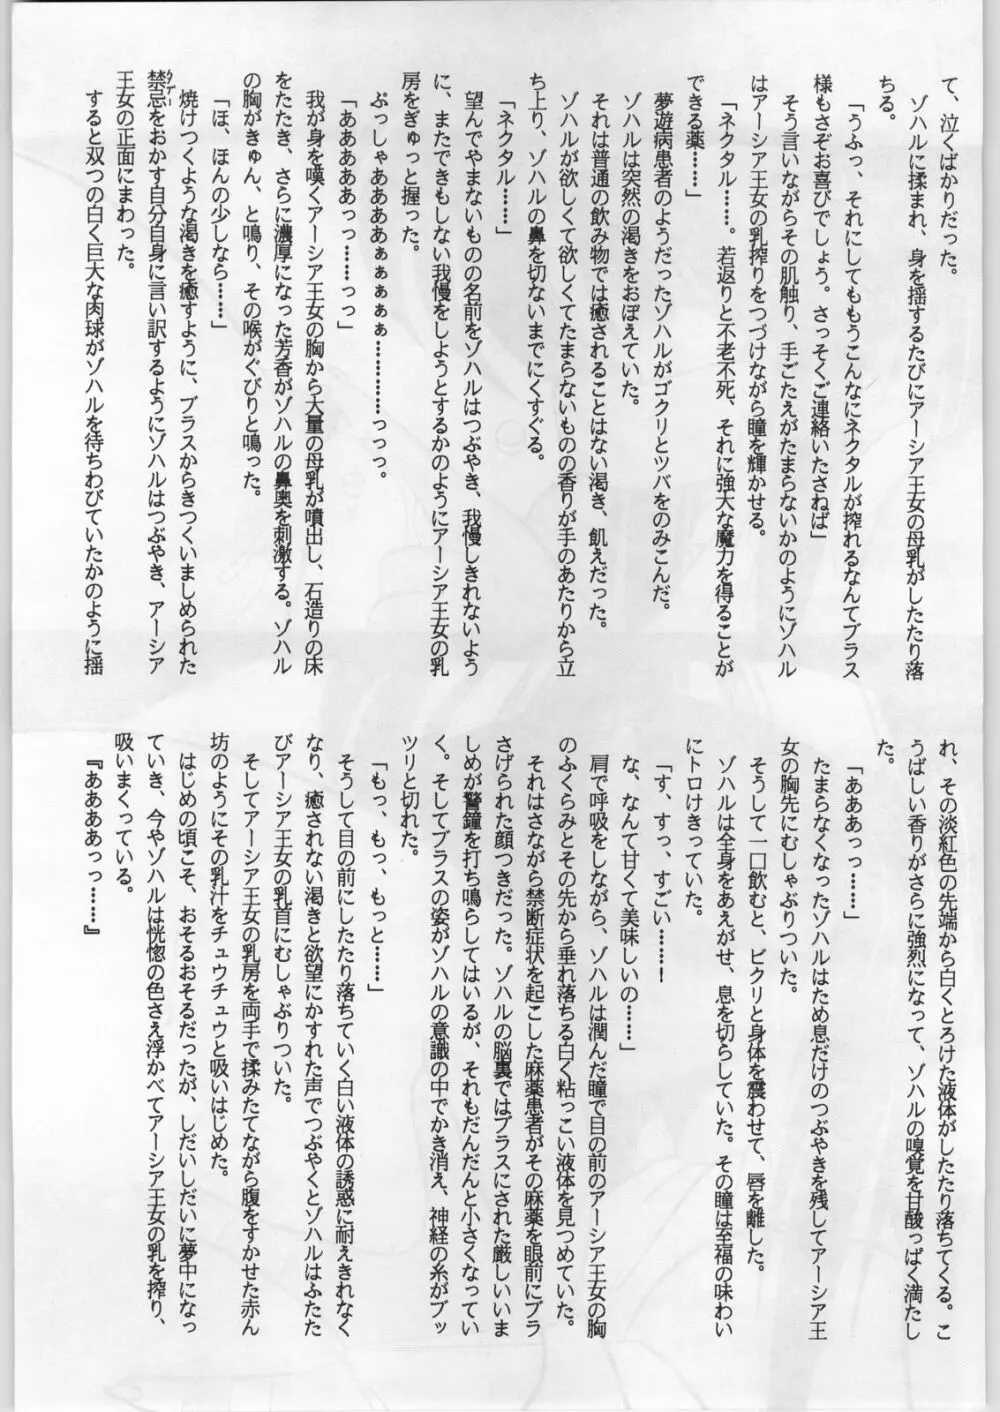 て、泣くばかりだった。
ゾハルに揉まれ、身を揺するたびにアーシア王女の母乳がしたたり落
ちる。
「うふっ、それにしてももうこんなにネクタルが搾れるなんてブラス
様もさぞお喜びでしょう。さっそくご連絡いたさねば」
そう言いながらその肌触り、手ごたえがたまらないかのようにゾハル
はアーシア王女の乳搾りをつづけながら瞳を輝かせる。
「ネクタル……。若返りと不老不死、それに強大な魔力を得ることが
できる薬……」
夢遊病患者のようだったゾハルがゴクリとツバをのみこんだ。
ゾハルは突然の渇きをおぼえていた。
それは普通の飲み物では癒されることはない渇き、飢えだった。
ゾハルが欲しくて欲しくてたまらないものの香りが手のあたりから立
ち上り、ゾハルの鼻を切ないまでにくすぐる。
「ネクタル……」
望んでやまないものの名前をゾハルはつぶやき、我慢しきれないよう
に、またできもしない我慢をしようとするかのようにアーシア王女の乳
房をぎゅっと握った。
ぷっしゃああああぁぁぁぁぁ…………っっっ。
「あああああっっ……っっ」
我が身を嘆くアーシア王女の胸から大量の母乳が噴出し、石造りの床
をたたき、さらに濃厚になった芳香がゾハルの鼻奥を刺激する。ゾハル
の胸がきゅん、と鳴り、その喉がぐびりと鳴った。
「ほ、ほんの少しなら……」
焼けつくような渇きを癒すように、ブラスからきつくいましめられた
禁忌をおかす自分自身に言い訳するようにゾハルはつぶやき、アーシア
王女の正面にまわった。
すると双つの白く巨大な肉球がゾハルを待ちわびていたかのように揺
れ、その淡紅色の先端から白くとろけた液体がしたたり落ちてくる。こ
うばしい香りがさらに強烈になって、ゾハルの嗅覚を甘酸っぱく満たし
た。
「あああっっ……」
たまらなくなったゾハルはため息だけのつぶやきを残してアーシア王
女の胸先にむしゃぶりついた。
そうして一口飲むと、ビクリと身体を震わせて、唇を離した。
ゾハルは全身をあえがせ、息を切らしていた。その瞳は至福の味わい
にトロけきっていた。
「す、すっ、すごい……！
な、なんて甘くて美味しいの……」
肩で呼吸をしながら、ゾハルは潤んだ瞳で目の前のアーシア王女の胸
のふくらみとその先から垂れ落ちる白く粘っこい液体を見つめていた。
それはさながら禁断症状を起こした麻薬患者がその麻薬を眼前にブラ
さげられた顔つきだった。ゾハルの脳裏ではブラスにされた厳しいいま
しめが警鐘を打ち鳴らしてはいるが、それもだんだんと小さくなってい
く。そしてブラスの姿がゾハルの意識の中でかき消え、神経の糸がブッ
ツリと切れた。
「もっ、もっ、もっと……」
そうして目の前にしたたり落ちていく白い液体の誘惑に耐えきれなく
なり、癒されない渇きと欲望にかすれた声でつぶやくとゾハルはふたた
びアーシア王女の乳首にむしゃぶりついた。
そしてアーシア王女の乳房を両手で揉みたてながら腹をすかせた赤ん
坊のようにその乳汁をチュウチュウと吸いはじめた。
はじめの頃こそ、おそるおそるだったが、しだいしだいに夢中になっ
ていき、今やゾハルは恍惚の色さえ浮かべてアーシア王女の乳を搾り、
吸いまくっている。
『ああああっっ……』